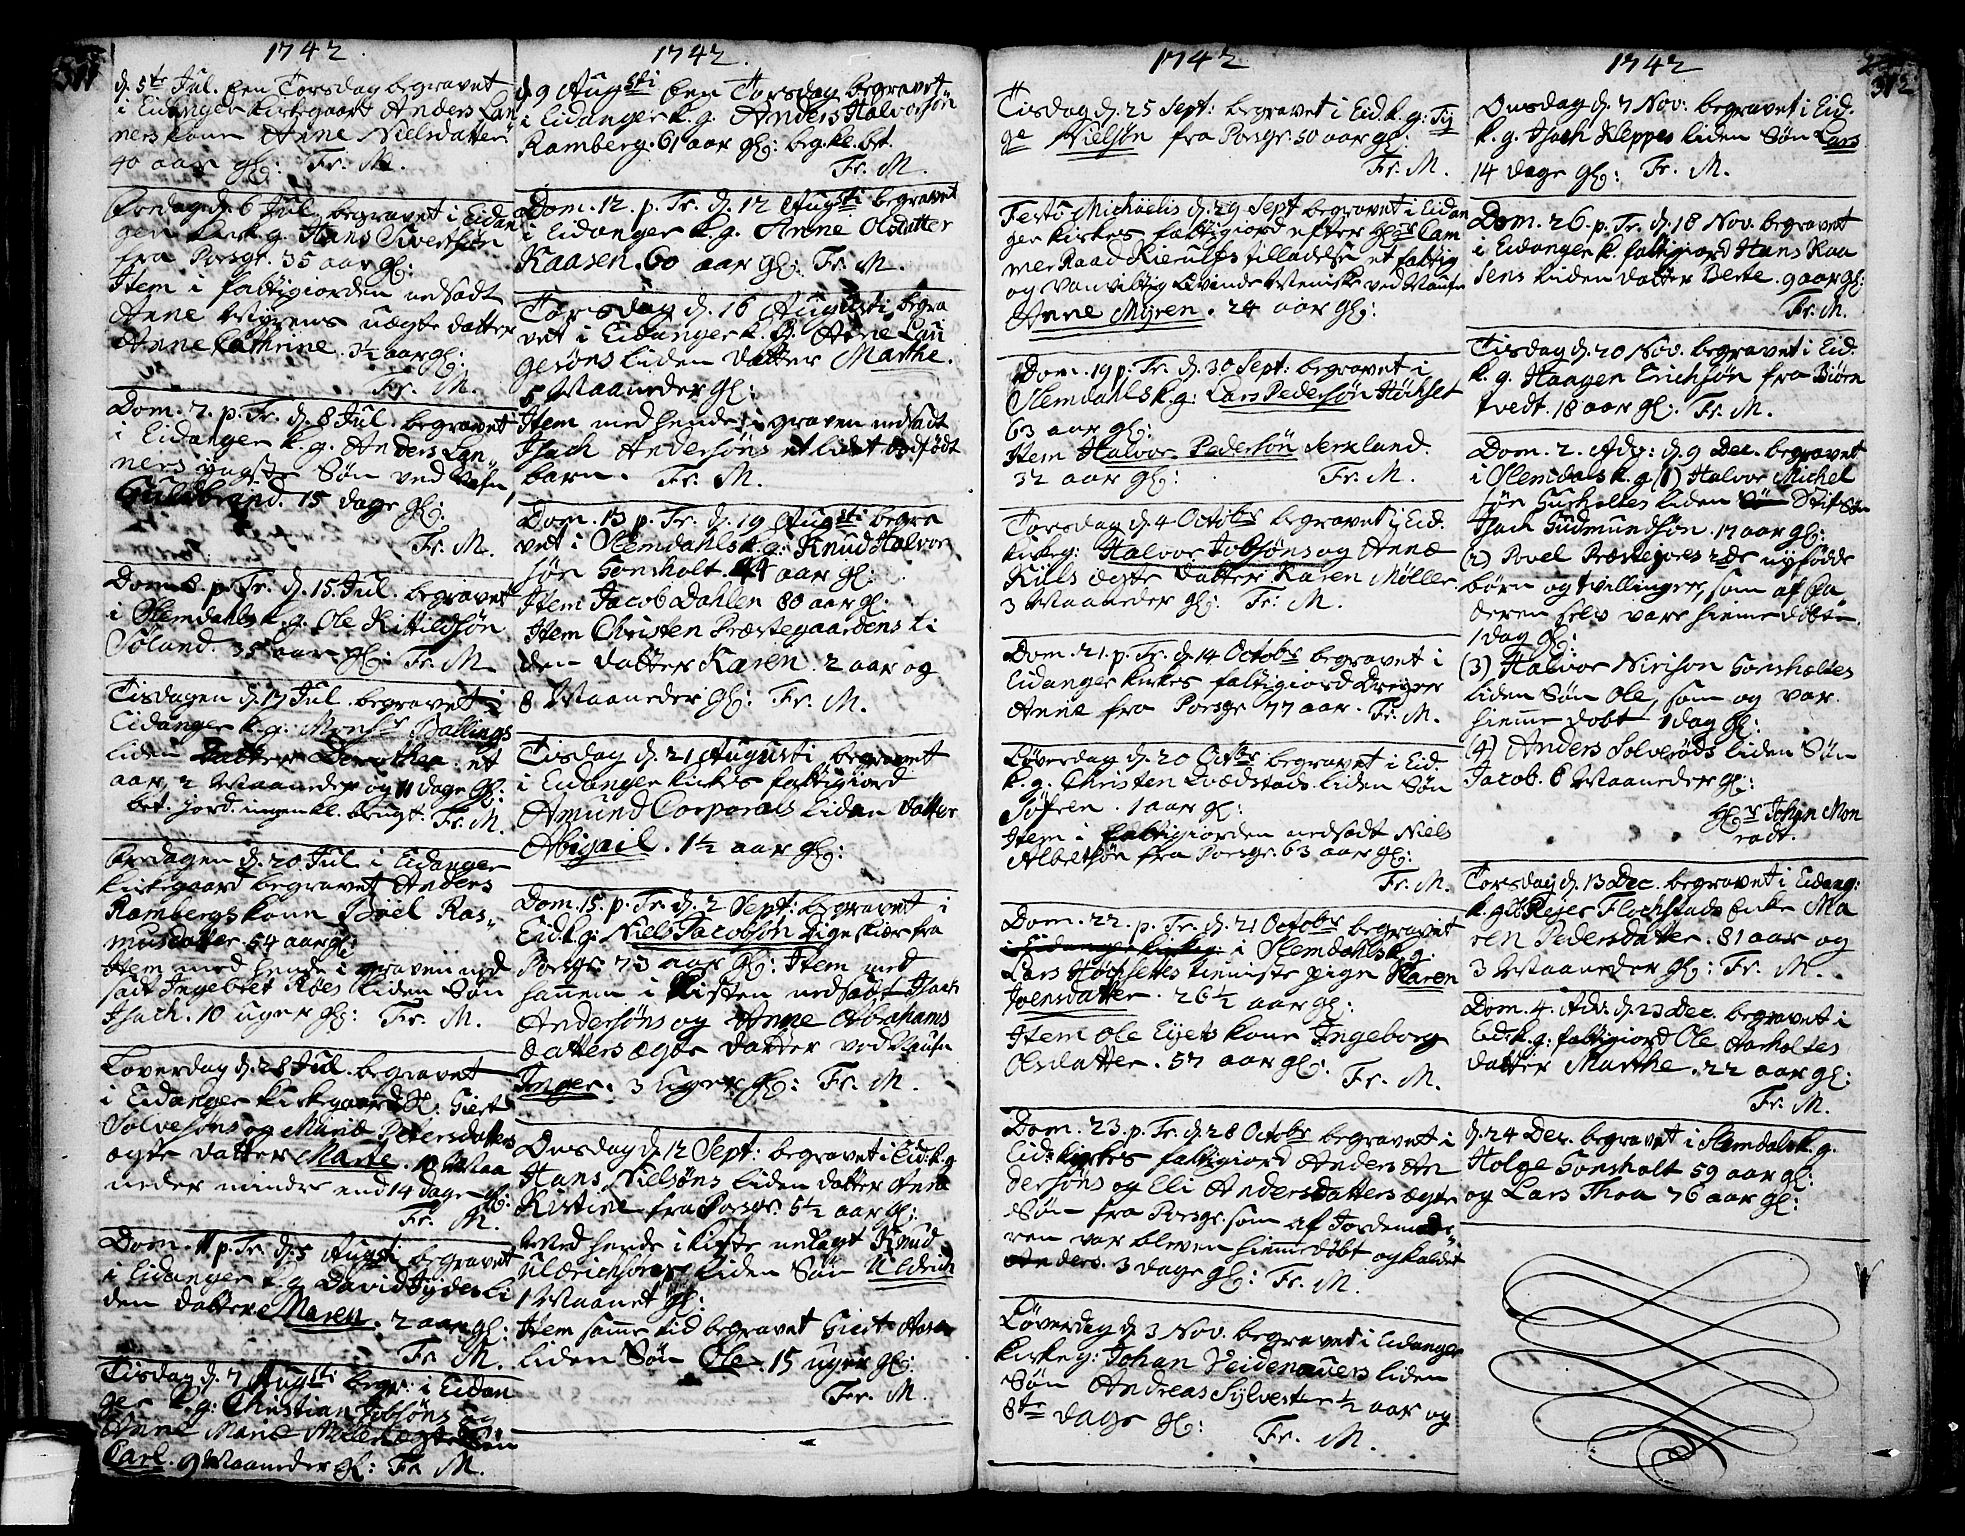 311
1742
d. 5te Jul. een Torsdag begravet
i Eidanger kirkegaard Anders Lan
ners kone Anne Nielsdatter
40 aar gl: Fr. M.
Fredag d. 6 Jul begravet i Eidan
ger kirk.g. Hans Sivertsøn
fra Porsgr. 35 aar gl:
Item i fattigiorden nedsadt
Anne Myrens uægte datter
Anne Cathrine. 3½ aar gl:
Fr. M.
Dom. 7. p. Tr. d. 8 Jul. begravet
i Eidanger k.g. Anders Lan
ners yngste Søn ved Nafn,
Guldbrand. 15 dage gl:
Fr. M.
Dom. 8. p. Tr. d. 15 Jul. begravet
i Slemdahls k.g. Ole Kittildsøn
Søland. 35 aar gl: Fr. M.
Tisdagen d. 17 Jul. begravet i
Eidanger k.g: Monsr Ballings
liden datter Dorothea: et
aar, 2 Maaneder og 11 dage gl:
bet. jord. ingen kl. brugt. Fr. M.
Fredagen d. 20 Jul. i Eidanger
kirkegaard begravet Anders
Rambergs kone Boel Ras
musdatter 54 aar gl:
Item med hende i graven ned
sadt Ingebret Røes liden Søn
Isach. 10 uger gl: Fr. M.
Løverdag d. 28 Jul. begravet
i Eidanger kirkegaard Giert
Solvesøns og Marie Petersdatters
ægte datter Marte. Maa
neder mindre end 14 dage gl:
Fr. M.
Dom. 11 p. Tr. d. 5 Augsti begravet
i Eidanger k.g. David Hyders li
den datter Maren. 2 aar gl:
Fr. M.
Tisdag d. 7 Augsti begr: i Eidan
ger k.g: Christian Jobsøns og
Anne Marie Møllers ægte Søn
Carl. 9 Maaneder gl: Fr. M.
1742.
d. 9 Augsti een Torsdag begravet
i Eidanger k.g. Anders Halvorsøn
Ramberg. 61 aar gl: beg.kl. bet.
Fr. M.
Dom. 12. p. Tr. d. 12 Augsti begravet
i Eidanger k.g. Anne Olsdatter
Kaasen. 60 aar gl: Fr. M.
Torsdag d. 16 Augusti begra
vet i Eidanger k.g. Arne Lau
gesøns liden datter Marthe.
5 Maaneder gl:
Item med hende i graven nedsadt
Isach Andersøns et lidet dødfødt
barn. Fr. M.
Dom. 13 p. Tr. d. 19 Augsti begra
vet i Slemdahls k.g: Knud Halvor
søn Gonsholt. 44 aar gl:
Item Jacob Dahlen 80 aar gl:
Item Christen Præstegaardens li
den datter Karen. 2 aar og
8 Maaneder gl: Fr. M.
Tisdag d. 21 Augusti begravet
i Eidanger kirkes fattigiord
Amund Corporals liden datter
Abigail. 1½ aar gl:
Dom. 15. p. Tr. d. 2 Sept: begravet i
Eid.k.g: Niels Jacobsøn Tigeskiær fra
Porsgr 73 aar gl: Item med
hannem i Kisten nedsadt Isach
Andersøns og Anne Abrahams
datters ægte datter ved Nafn
Inger. 3 Uger gl: Fr. M.
Onsdag d. 12 Sept: begravet i Eid.k.g
Hans Nielsøns liden datter Anne
Kistine fra Porsgr. 5½ aar gl:
Med hende i kiste nedlagt Knud
Uldrichsøns liden Søn Uldrich
1 Maanet gl:
Item samme tid begravet Giert Aases
liden Søn Ole. 15 uger gl:
Fr. M.
1742
Tisdag d. 25 Sept: begravet i Eid.k.g: Ty
ge Nielsøn fra Porsgr. 50 aar gl:
Fr. M.
Festo Michaelis d. 29 Sept begravet i Eidan
ger kirkes fattigiord efter Hr Cam
mer Raad Kierulfs tilladelse et fattig
og vanvittig qvinde Menniske ved Nafn
Anne Myren. 24 aar gl:
Dom. 19 p. Tr. d. 30 Sept: begravet i
Slemdahls k.g: Lars Pedersøn Høchset
63 aar gl:
Item Halvor Pedersøn Serkland.
32 aar gl: Fr. M.
Torsdag d. 4 Octobr begravet i Eid.
kirkeg: Halvor Jobsøns og Anne
Kiils ægte datter Karen Møller
3 Maaneder gl: Fr: M.
Dom. 21. p. Tr. d. 14 Octobr begravet i
Eidanger kirkes fattigiord Dreyer
Anne fra Porsgr 77 aar. Fr. M.
Løverdag d. 20 Octbr begravet i Eid.
k.g. Christen Qvædstads liden Søn
Søfren. 1 aar gl:
Item i fattigiorden nedsadt Niels
Albertsøn fra Porsgr. 63 aar gl:
Fr. M.
Dom. 22. p. Tr. d. 21 Octobr begravet
i Eidanger kirkeg. i Slemdahls k.g.
Lars Høchsettes tieneste pige Karen
Joensdatter. 26½ aar gl:
Item Ole Eyets kone Ingeborg
Olsdatter. 57 aar gl:
Fr. M.
Dom. 23. p. Tr. d. 28 Octobr begravet i
Eid: kirkes fattigiord Anders An
dersøns og Eli Andersdatters ægte
Søn fra Porsgr. som af Jordemode
ren var bleven hiemmedøbt og kaldet
Anders. 3 dage gl: Fr. M.
Løverdag d. 3 Nov. begravet i Eidanger
kirkeg: Johan Neidenauers liden
Søn Andreas Sylvester ½ aar og
8te dage gl: Fr. M.
1742
312
Onsdag d. 7 Nov: begravet i Eid.
k.g. Isach Kleppes liden Søn Lars
14 dage gl: Fr. M.
Dom. 26. p. Tr. d. 18 Nov. begravet
i Eidanger k. fattigiord Hans Kaa
sens liden datter Berte. 9 aar gl:
Fr. M.
Tisdag d. 20 Nov. begravet i Eid.
k.g. Haagen Erichsøn fra Biørn
tvedt. 18 aar gl: Fr. M.
Dom. 2. Adv: d. 9 Dec. begravet
i Slemdals k.g. (1) Halvor Michel
søn Surholtes liden Søn Stif Søn
Isach Gudmundsøn. 17 aar gl:
(2) Povel Præstegores 2de nyfødde
børn og tvillinger, som af Fa
deren selv vare hiemmedøbte.
1 dag gl:
(3) Halvor Nirison Gonsholtes
liden Søn Ole, som og var
hieme døbt, 1 dag gl:
(4) Anders Solverøds liden Søn
Jacob. 6 Maaneder gl:
Hr Johan Mon
radt.
Torsdag d. 13 Dec. begravet i Eidang:
k.g. Reier Flochstads Enke Ma
ren Pedersdatter. 81 aar og
3 Maaneder gl: Fr. M.
Dom. 4. Adv. d. 23 Dec. begravet i
Eid.k.g: fattigiord Ole Aarholtes
datter Marthe. 22 aar gl:
Fr. M.
d. 24 Dec. begravet i Slemdals k.g.
Holge Gonsholt 59 aar gl:
og Lars Thoa 76 aar gl: